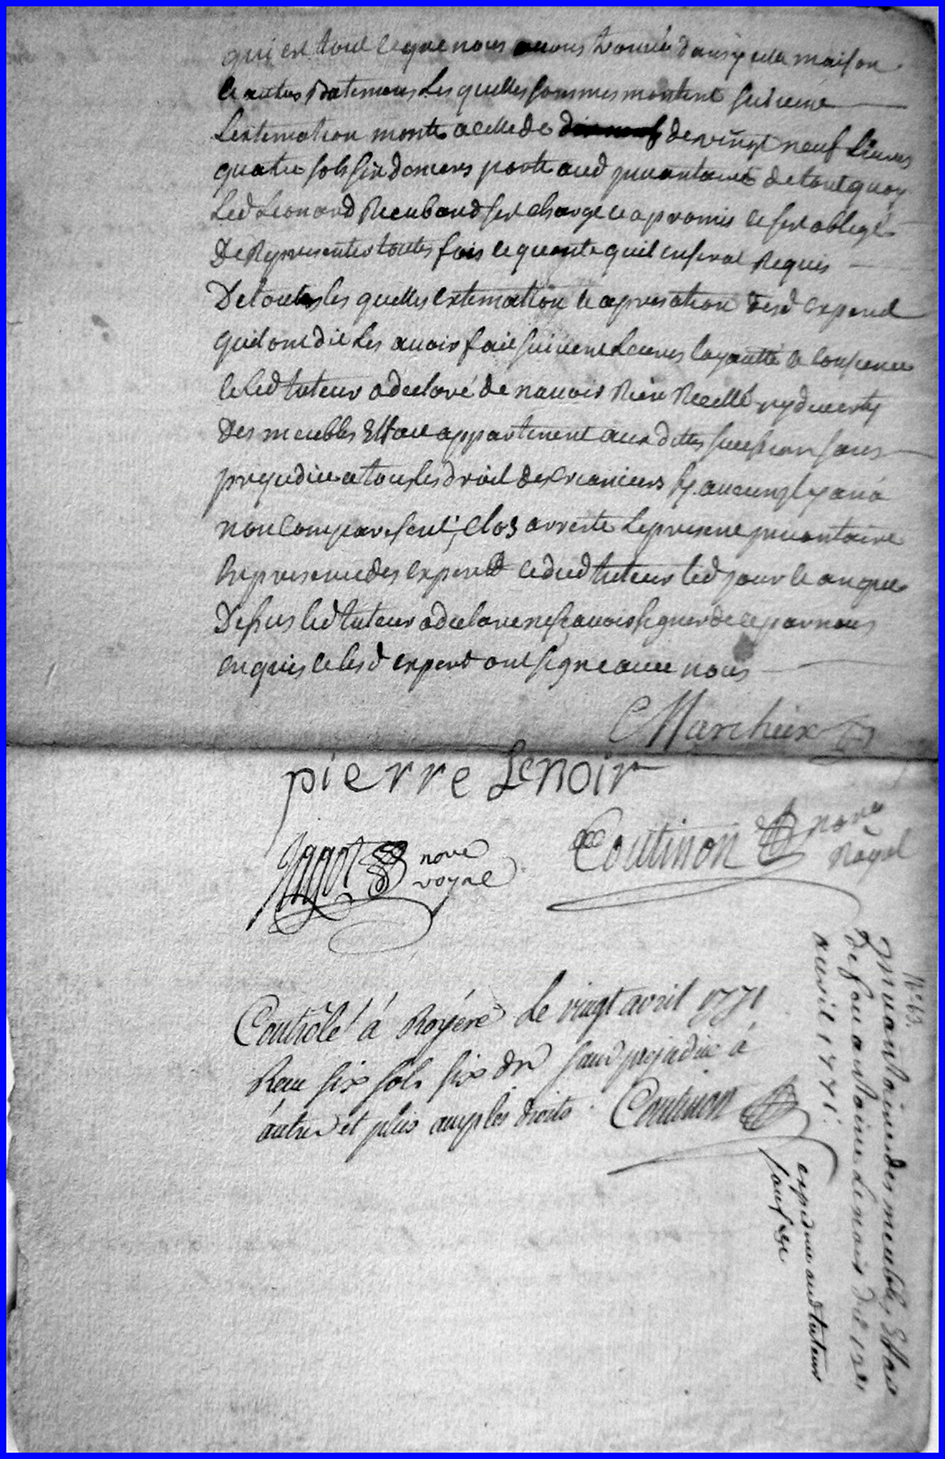 qui est tout ce que nous avons trouvé dans ycelle maison
et autres Batemens Lesquelles sommes montent suivent
Lestimation monte a celle de de vingt neuf Livres
quatre sols six deniers porté aud jnvantaire de tout quoy
Led Leonard sest chargé et a promis et sest obligé
De Representer toutes fois et quante quil en seral Requis
De toutes les quelles estimation et apresation lesd expend
quil ont dit Les avoir fait suivent Leurs loyautté et consience
et Led tuteur a declaré de navoir Rien Recellé ny diverty
Des meubles Effait appartenent aux dittes sucession sans
prejudice a tous les droit des creanciers sy aucuns y en a
non comparesent, Clos arresté Le present jnvantaire
En presence des expend et dud tuteur Led jour et an que
Dessus Led tuteur a declare ne scavoir signer de ce par nous
enquis et les d expend ont signe avec nous
Marcheix
pierre Lenoir
Jagot nore
royal
Coutinon nore
Royal
Contrôlé à Royére Le vingt avril 1771
Reçu six sols six dr sans prejudice à
autres et plus amples droits. Coutinon
N° 63
Jnvantaire des meubles, Effait
de feu antoine Lenoir du 12
avril 1771.
expedie aud tuteur